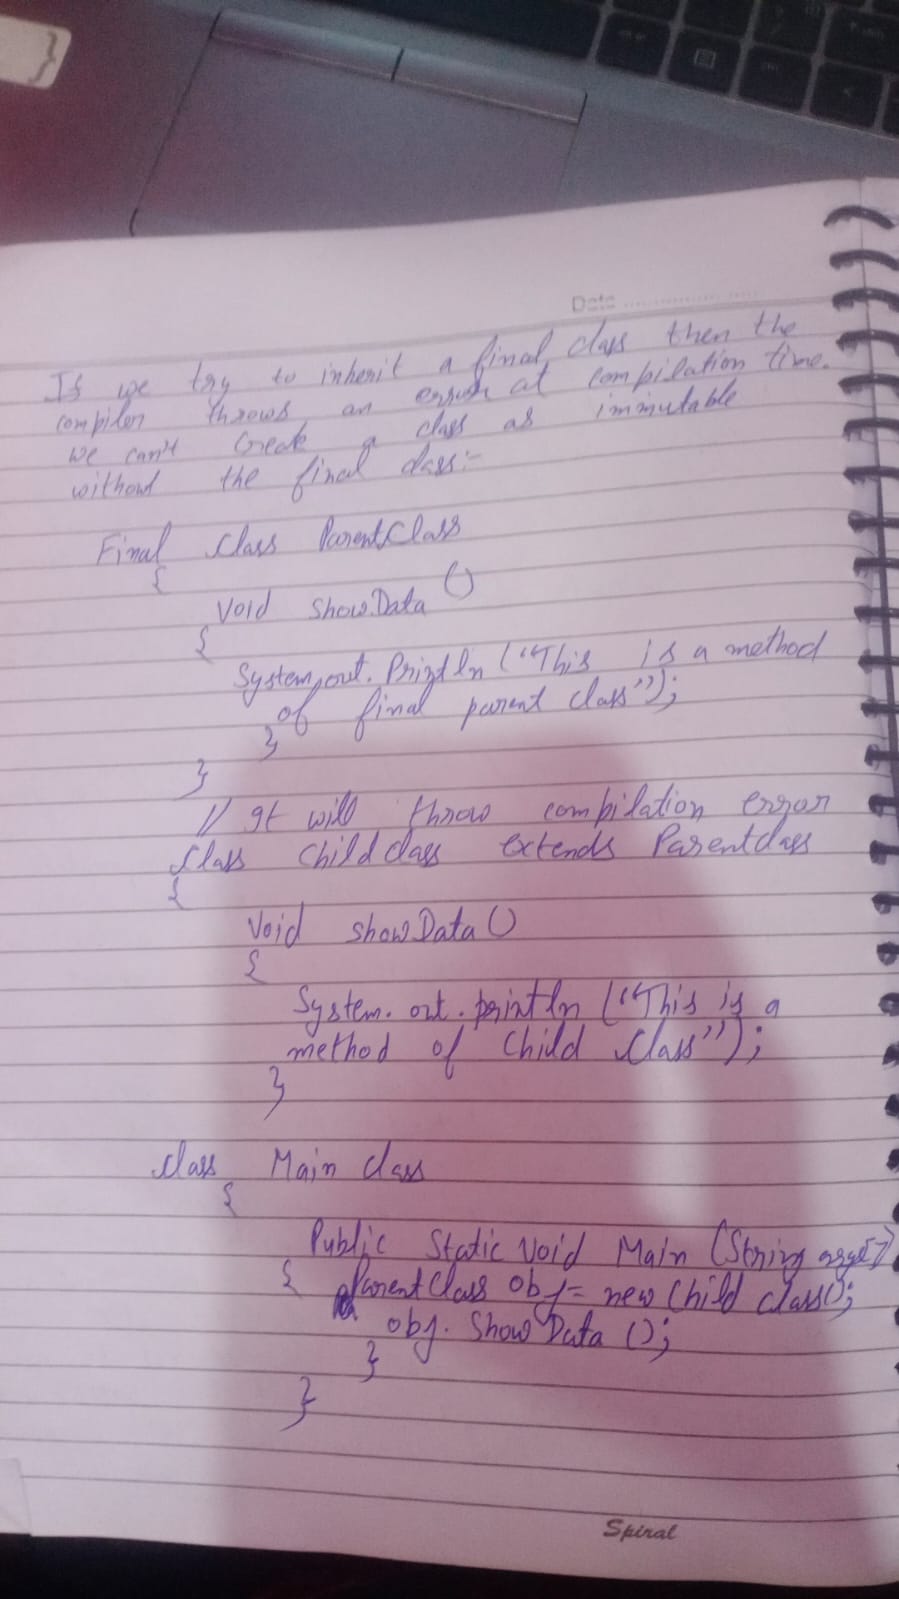 Date
If we try to inherit a final class then the
compiler throws an error at compilation time.
we can't create a class as immutable
without the final class:-
Final Class ParentClass
{
Void showData ()
{
System.out.Println ("This is a method
of final parent class");
}
}
// It will throw compilation error
Class childclass extends Parentclass
{
Void showData ()
{
System.out.println ("This is a
method of Child Class");
}
class Main class
{
Public Static Void Main (String args[])
{ ParentClass obj = new Child class();
obj. Show Data ();
}
}
Spiral